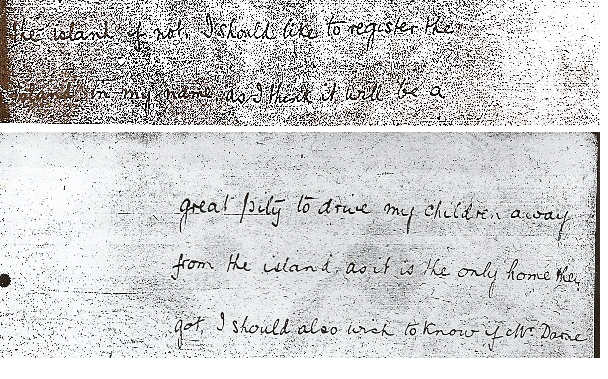 the island if not, I should like to register the
island in my name as I think it will be a
great pity to drive my children away
from the island, as it is the only home they
got, I should also wish to know if Mr